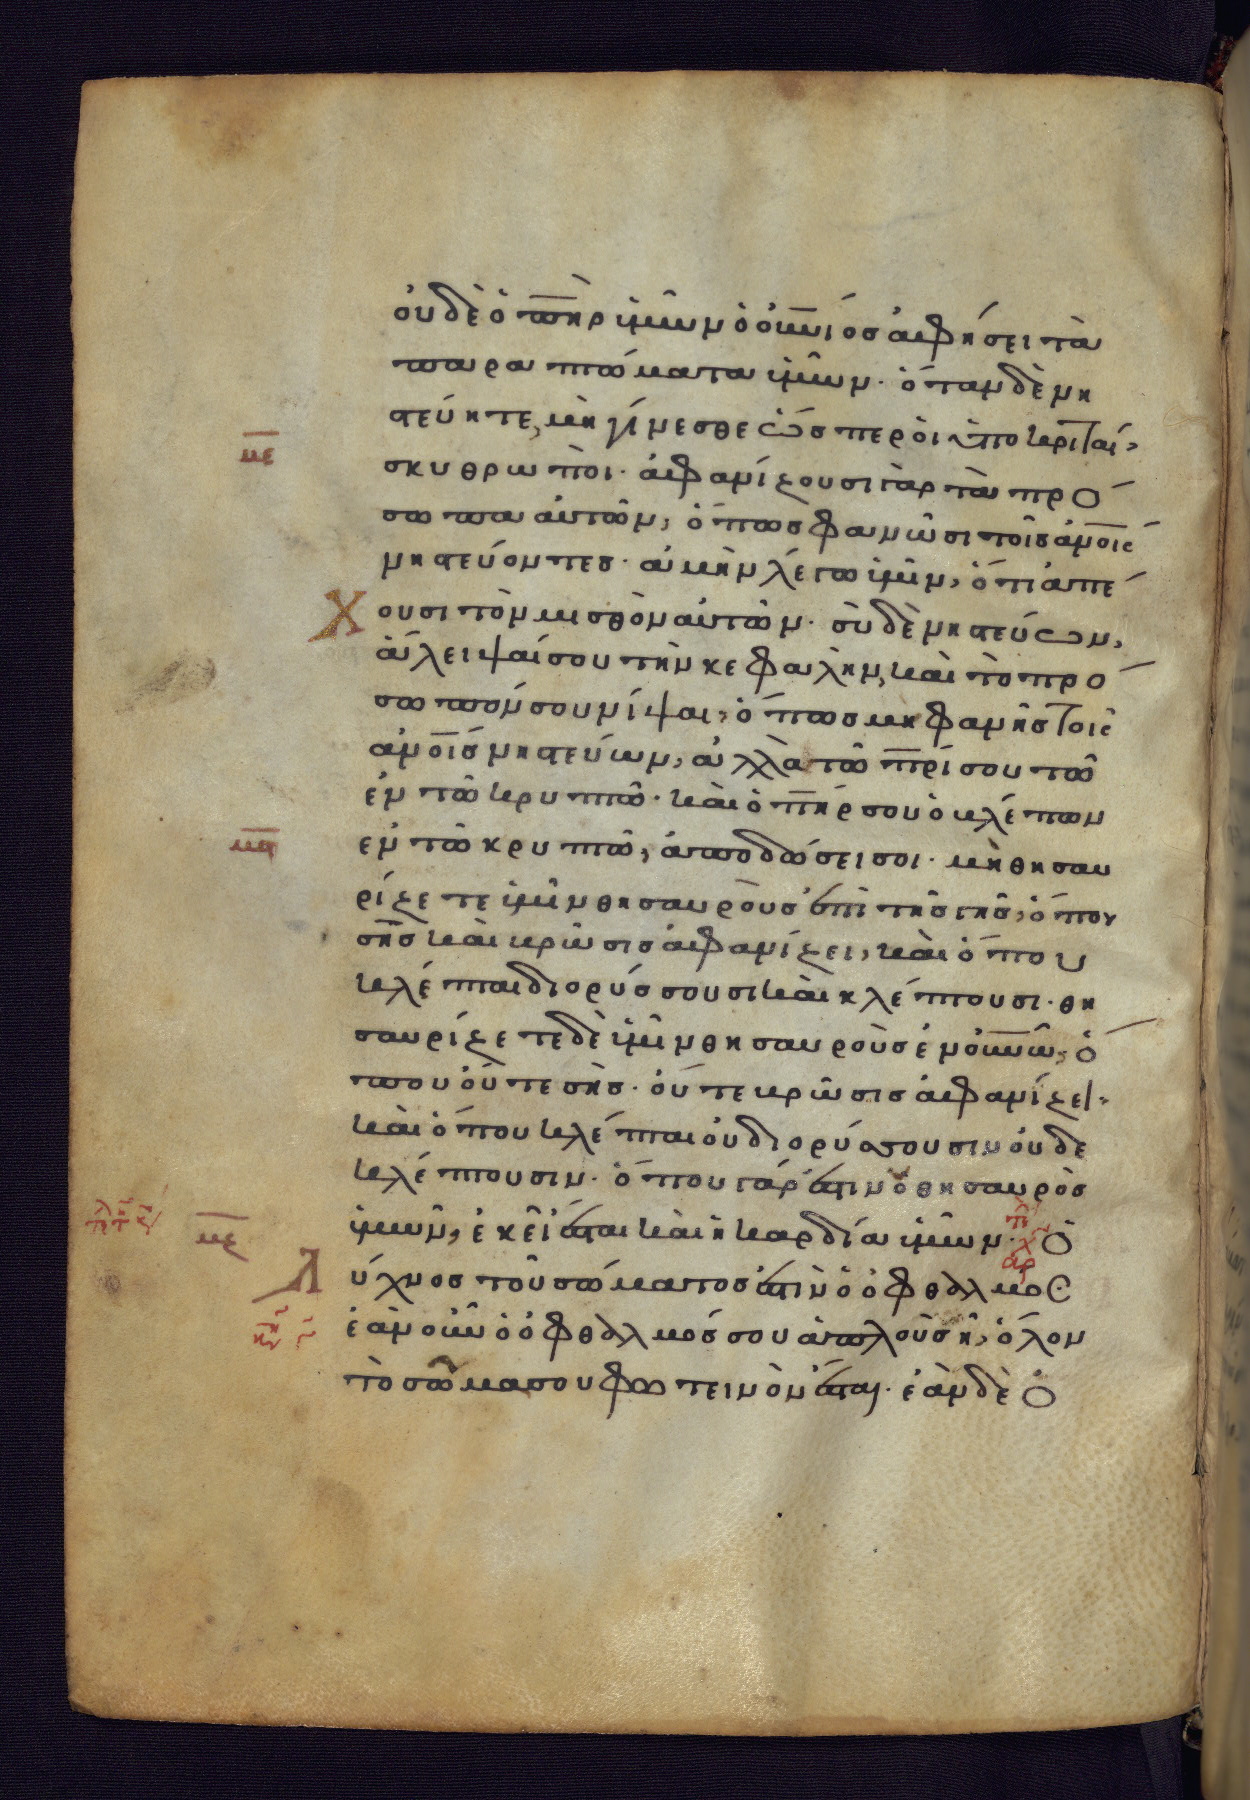 οὐδὲ ὁ π̅η̅ρ ὑμῶν ὁ ο̅υ̅ν̅ιος ἀφήσει τὰ
παραπτώματα ὑμῶν· ὅταν δὲ νη
στεύητε, μὴ γίνεσθε ὥσπερ ὁι ὑποκριταί,
σκυθρωποὶ· ἀφανίζουσι γὰρ τὰ πρό
σωπα αὐτῶν, ὅπως φανῶσι τοῖς α̅ν̅οις
νηστεύοντες· ἀμὴν λέγω ὑμῖν, ὅτι ἀπέ
χουσι τὸν μισθὸν αὐτῶν· σὺ δὲ νηστεύων,
ἄλειψαί σου τὴν κεφαλὴν, καὶ τὸ πρό
σωπόν σου νίψαι, ὅπως μὴ φανῇς τοῖς
α̅ν̅οις νηστεύων, ἀλλὰ τῷ π̅ρ̅ι σου τῷ
ἐν τῷ κρυπτῷ· καὶ ὁ π̅η̅ρ σου ὁ βλέπων
ἐν τῷ κρυπτῷ, ἀποδώσει σοι· μὴ θησαυ
ρίζετε ὑμῖν θησαυροὺς ἐπὶ τῆς γῆς, ὅπου
σὴς καὶ βρῶσις ἀφανίζει, καὶ ὅπου
κλέπται διορύσσουσι καὶ κλέπτουσι· θη
σαυρίζετε δὲ ὑμῖν θησαυροὺς ἐν ο̅υ̅ν̅ω, ὅ
που οὔτε σὴς· οὔτε βρῶσις ἀφανίζει·
καὶ ὅπου κλέπται οὐ διορύσσουσιν οὐδὲ
κλέπτουσιν· ὅπου γάρ ἐστιν ὁ θησαυρὸς
ὑμῶν, ἐκεῖ ἔσται καὶ ἡ καρδία ὑμῶν· Ὁ
λύχνος τοῦ σώματός ἐστιν ὁ ὀφθαλμός
ἐὰν οὖν ὁ ὀφθαλμός σου ἁπλοῦς ᾖ, ὅλον
τὸ σῶμα σου φωτεινὸν ἔσται· ἐὰν δὲ ὁ